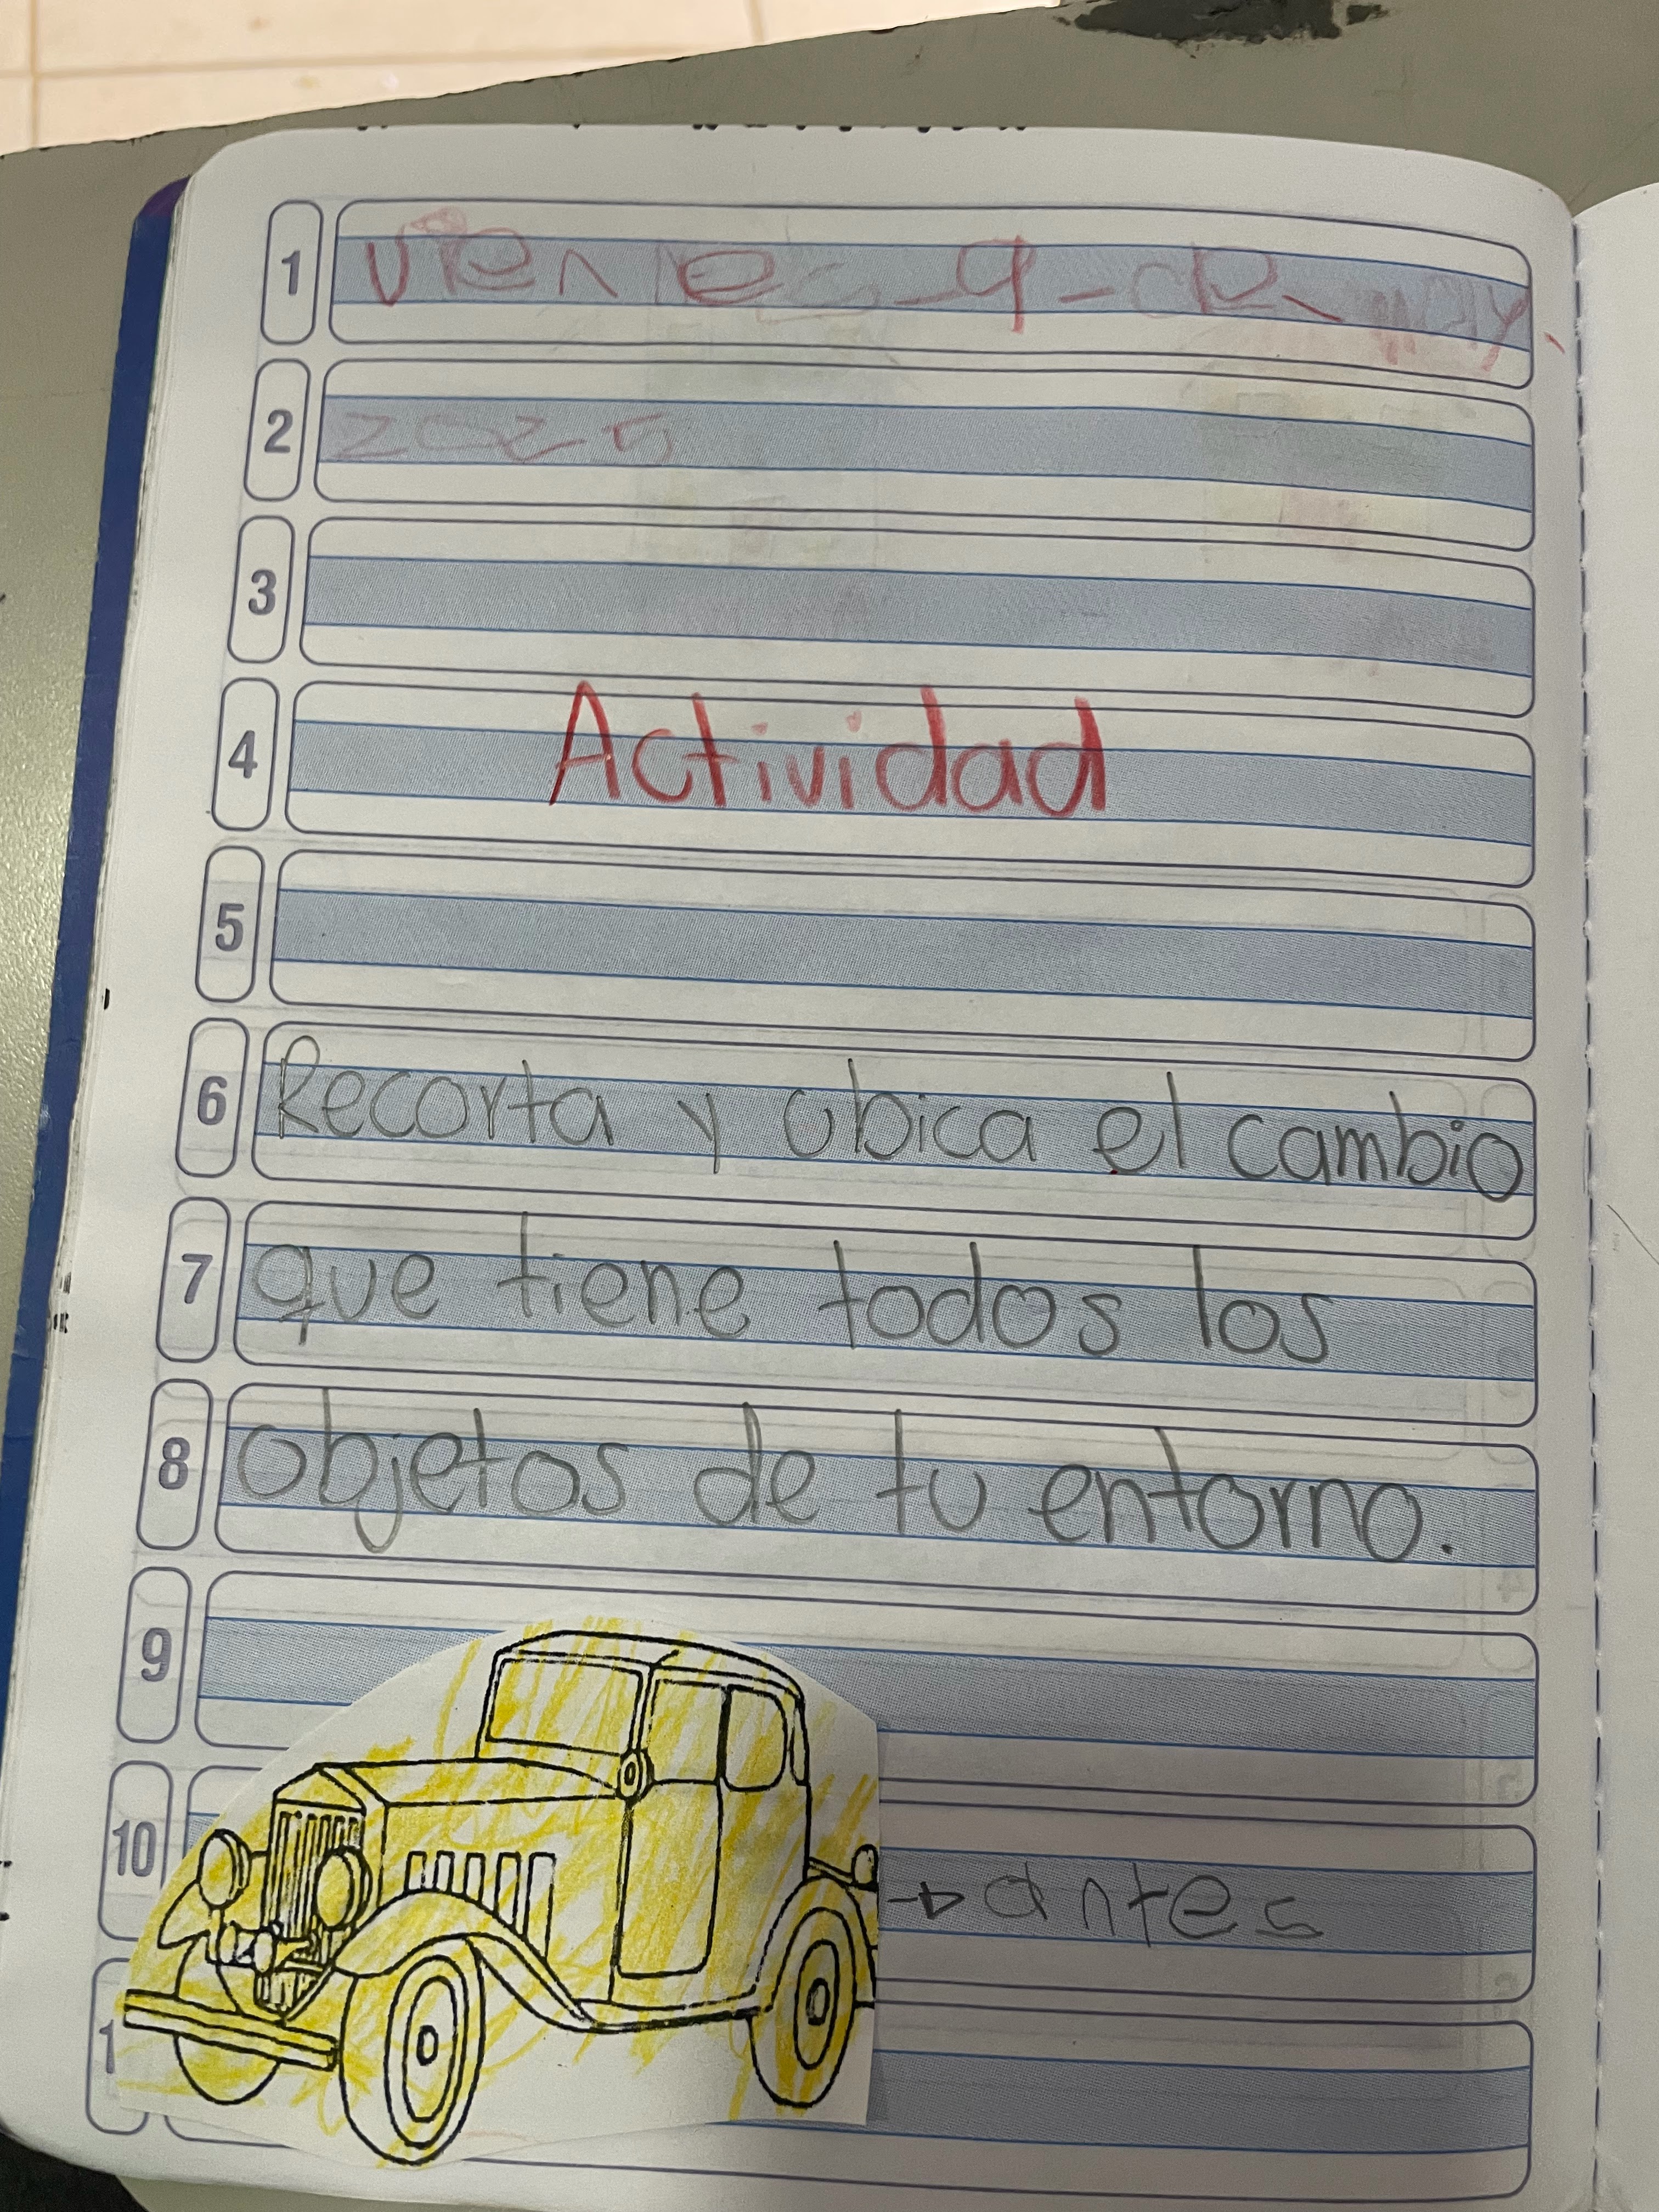 1 viernes-9-de-may
2 2025
3
4 Actividad
5
6 Recorta y ubica el cambio
7 que tiene todos los
8 objetos de tu entorno.
9
10 → antes
1